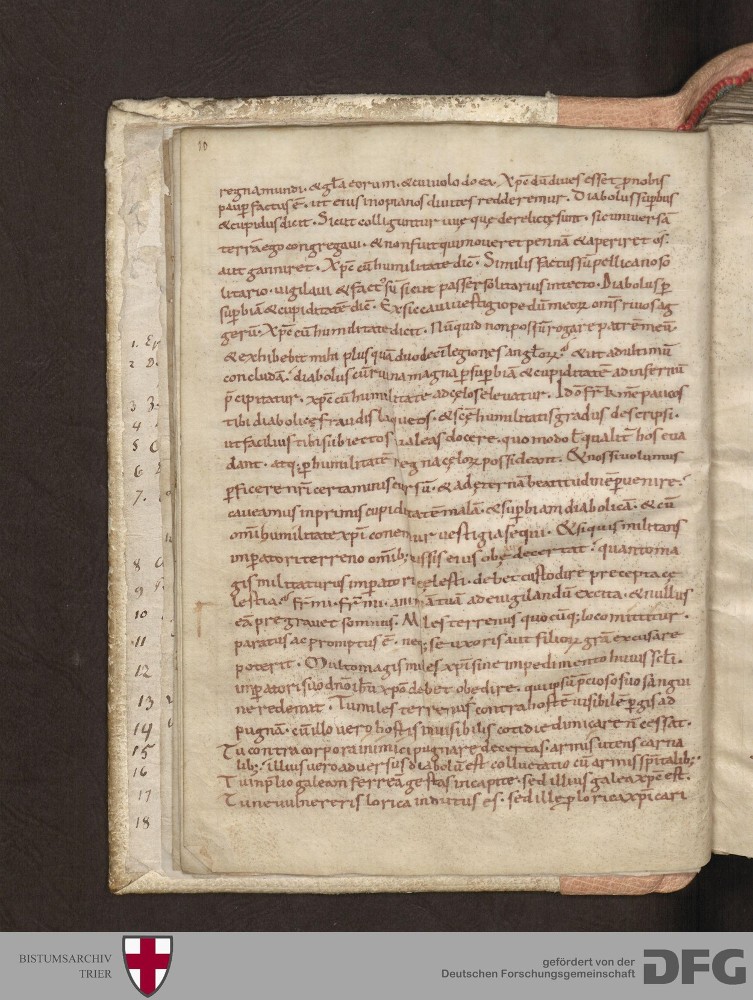 10
regna mundi · & gl̄a eorum · & cui uolo do ea · Xp̄c dū diues esset p̄ nobis
paup̄ factus ē · ut eius inopia nos diuites redderemur · Diabolus sup̄bus
& cupidus dicit · Sicut colliguntur uuę quę derelictę sunt · sic uniuersā
terrā ego congregaui · & non fuit qui moueret pennā & aperiret os ·
aut ganniret · Xp̄c cū humilitate dic̄ · Similis factus sū pellicano so
litario · uigilaui & fact᾽ sū sicut passer solitarius in tecto · Diabolus p̄
sup̄biā & cupiditatē dic̄ · Exsiccaui uestigio pedū meoꝝ om̄s riuos ag
gerū · Xp̄c cū humilitate dicit · Nūquid non possū rogare patrē meū ·
& exhibebit mihi plus quā duodecī legiones angl̄oꝝ · & ut ad ultimū
concludā · diabolus cū ruina magna p̄ sup̄biā & cupiditatē ad infernū
p̄cipitatur · xp̄c cū humilitate ad cęlos eleuatur · Ido fr̄ k̄me paucos
tibi diabolicę fraudis laqueos · & scę humilitatis gradus descripsi ·
ut facilius tibi subiectos ualeas docere · quomodo l̄ qualit̄ hos eua
dant · atq; p̄ humilitatē regna cęloꝝ possideant · Qd̄ nos si uolumus
p̄ficere nr̄i certaminis cursū · & ad ęternā beatitudinē p̄uenire ·
caueamus in primis cupiditatē malā · & sup̄biam diabolicā · & cū
om̄i humilitate xp̄i conemur uestigia sequi · & si quis militans
imperatori terreno om̄ib; iussis eius obędire decertat · quanto ma
gis militaturus imp̄atori cęlesti · debet custodire precepta cę
lestia · fr̄ mi · fr̄ mi · animā tuā ad euigilandū excita · & nullus
eā pregrauet somnus · Miles terrenus quocūq; loco mittitur ·
paratus ac promptus ē · neq; se uxoris aut filioꝝ grā excusare
poterit · Multo magis miles xp̄i sine impedimento huius scl̄i ·
imp̄atori suo dn̄o ih̄u xp̄o debet obędire · qui ipsū p̄cioso suo sangui
ne redemit · Tu miles terrenus contra hostē uisibilē p̄gis ad
pugnā · cū illo uero hostis inuisibilis cotidie dimicare n̄ cessat ·
Tu contra corpora inimici pugnare decertas · armis utens carna
lib; · illius uero aduersus diabolū est colluctatio cū armis sp̄italib; ·
Tu in p̄lio galeam ferreā gestas in capite · sed illius galea xp̄c est ·
Tu ne uulnereris lorica indutus es · sed ille p̄ lorica xp̄i cari
1.
2
3
4
5
6
7.
8
9
10
11
12
13
14
15
16
17
18
BISTUMSARCHIV
TRIER
gefördert von der
Deutschen Forschungsgemeinschaft
DFG